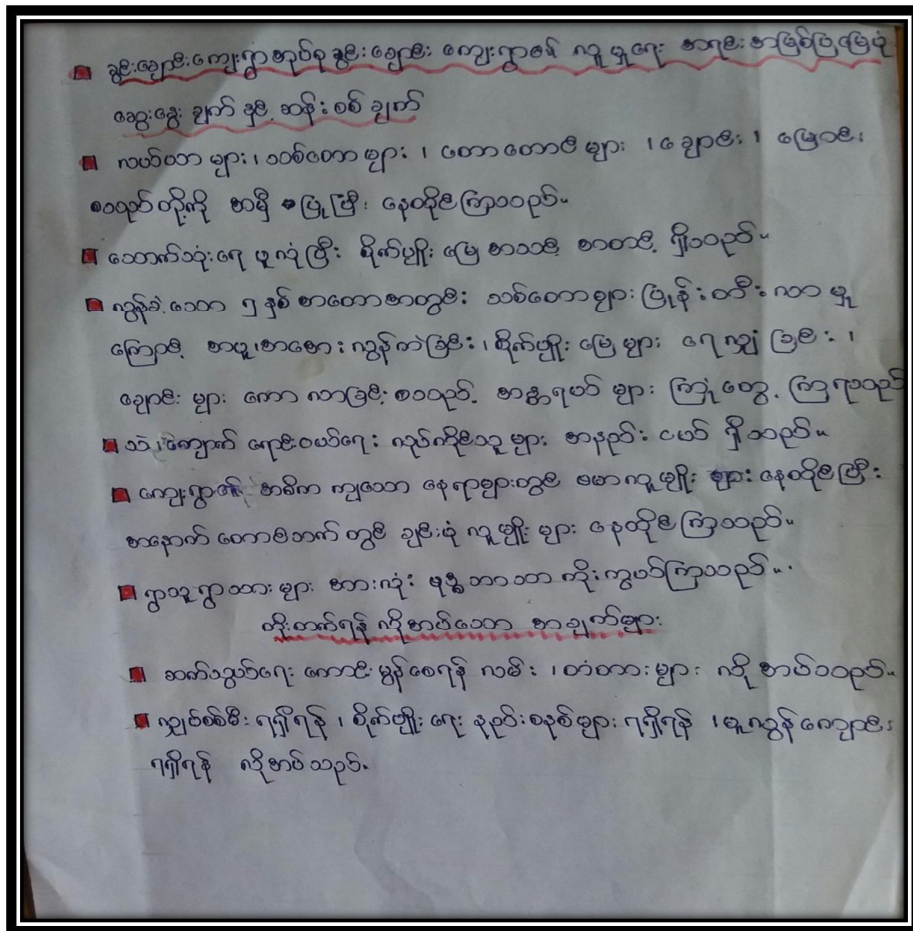 ခွင်းချောင်းကျေးရွာအုပ်စု ခွင်းချောင်း ကျေးရွာ၏ လူမှုရေး အရင်းအမြစ်ပြမြေပုံ
ဆွေးနွေးချက် နှင့် ဆန်းစစ်ချက်
လယ်တောများ၊ သစ်တောများ၊ တောတောင်များ၊ ချောင်း၊ မြောင်း
စသည်တို့ကို အမှီ ပြုပြီး နေထိုင်ကြသည်။
သောက်သုံးရေ ဖူလုံပြီး စိုက်ပျိုးမြေ အသင့် အတင့် ရှိသည်။
လွန်ခဲ့သော ၅ နှစ် အတောအတွင်း သစ်တောများ ပြုန်းတီးလာမှု
ကြောင့် အပူ၊အအေး လွန်ကဲခြင်း၊ စိုက်ပျိုးမြေများ ရေလျှံခြင်း၊
ချောင်းများ ကောလာခြင်း စသည့် အန္တရာယ်များ ကြုံတွေ့ကြရသည်
သဲ၊ကျောက် ရောင်းဝယ်ရေး လုပ်ကိုင်သူများ အနည်းငယ် ရှိသည်။
ကျေးရွာ၏ အဓိက ကျသော နေရာများတွင် ဗမာလူမျိုးများ နေထိုင်ပြီး
အနောက်တောင်ဘက်တွင် ချင်းပုံလူမျိုးများ နေထိုင်ကြသည်။
ရွာသူရွာသားများ အားလုံး ဗုဒ္ဓဘာသာ ကိုးကွယ်ကြသည်။
တိုးတက်ရန် လိုအပ်သော အချက်များ
ဆက်သွယ်ရေး ကောင်းမွန်စေရန် လမ်း၊တံတားများ လိုအပ်သည်။
လျှပ်စစ်မီး ရရှိရန်၊ စိုက်ပျိုးရေး နည်းစနစ်များ ရရှိရန်၊ မူလွန်ကျောင်း
ရရှိရန် လိုအပ်သည်။